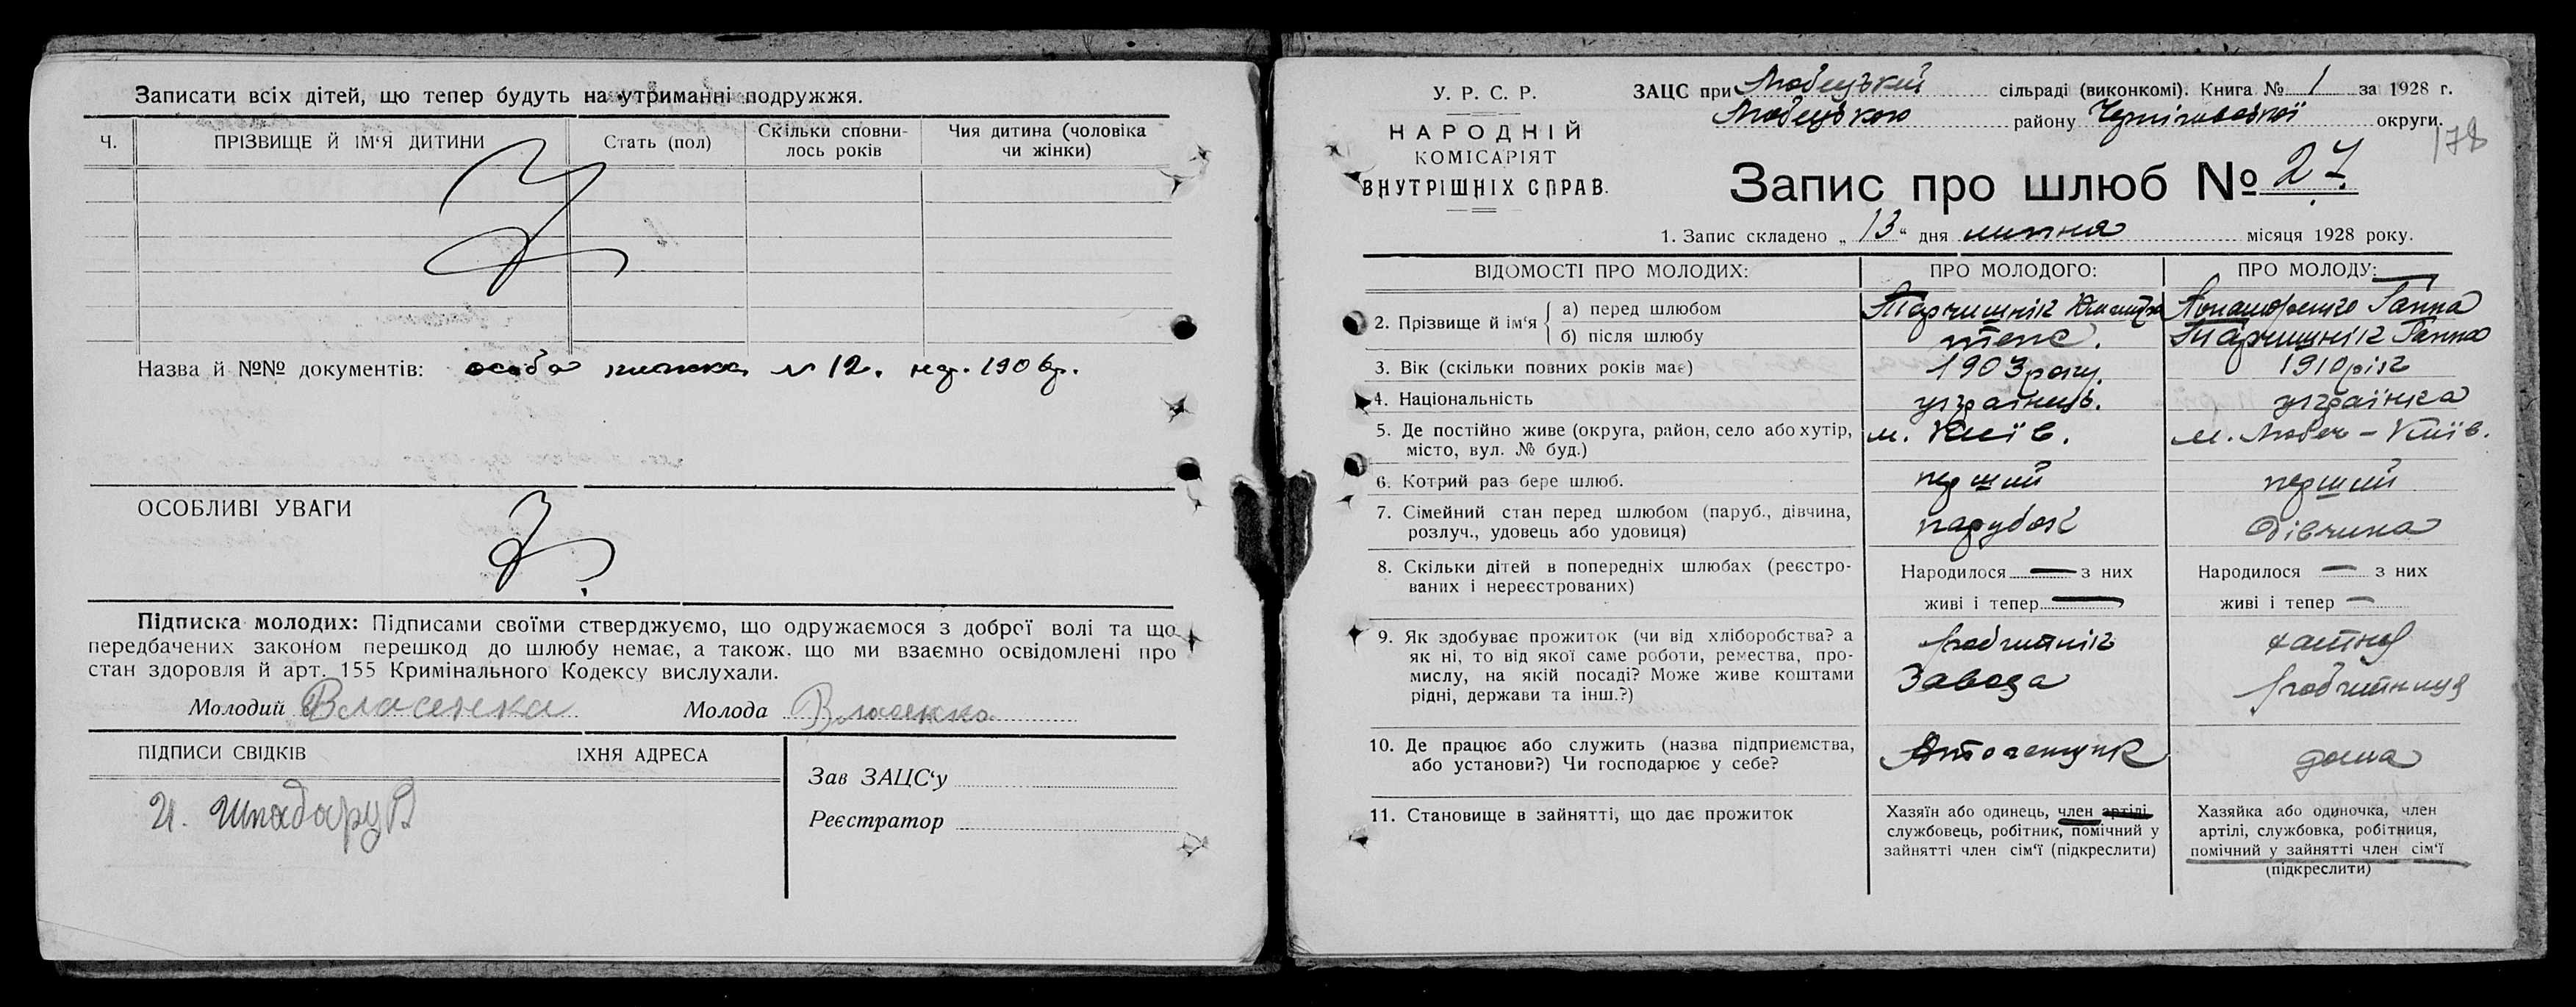 Записати всіх дітей, що тепер будуть на утриманні подружжя.
Ч.
ПРІЗВИЩЕ Й ІМ'Я ДИТИНИ
Стать (пол)
Скільки сповни-
лось років
Чия дитина (чоловіка
чи жінки)
Назва й №№ документів: особа книжка № 12.
ОСОБЛИВІ УВАГИ
Підписка молодих: Підписами своїми стверджуємо, що одружаємося з доброї волі та що
передбачених законом перешкод до шлюбу немає, а також, що ми взаємно освідомлені про
стан здоровля й арт. 155 Кримінального Кодексу вислухали.
Молодий Власенка Молода Власенко
ПІДПИСИ СВІДКІВ
ІХНЯ АДРЕСА
Зав ЗАЦС'у
Реєстратор
У. Р. С. Р.
НАРОДНІЙ
КОМІСАРІЯТ
ВНУТРІШНІХ СПРАВ.
ЗАЦС при Любецький сільраді (виконкомі). Книга № 1 за 1928 г.
Любецького району Чернігівської округи.
178
Запис про шлюб № 27.
1. Запис складено „13" дня липня місяця 1928 року.
ВІДОМОСТІ ПРО МОЛОДИХ:
ПРО МОЛОДОГО:
ПРО МОЛОДУ:
2. Прізвище й ім'я
а) перед шлюбом
Ганна
б) після шлюбу
теж.
Ганна
3. Вік (скільки повних років має)
1903 року.
1910 рік
4. Національність
українець.
українка
5. Де постійно живе (округа, район, село або хутір,
місто, вул. № буд.)
м. Київ.
м. Любеч – Київ.
6. Котрий раз бере шлюб.
перший
перший
7. Сімейний стан перед шлюбом (паруб., дівчина,
розлуч., удовець або удовиця)
парубок
дівчина
8. Скільки дітей в попередніх шлюбах (реєстро-
ваних і нереєстрованих)
Народилося — з них
живі і тепер —
Народилося — з них
живі і тепер —
9. Як здобуває прожиток (чи від хліборобства? а
як ні, то від якої саме роботи, ремества, про-
мислу, на якій посаді? Може живе коштами
рідні, держави та інш.?)
робитник
Завода
хатня
робитниця
10. Де працює або служить (назва підприємства,
або установи?) Чи господарює у себе?
дома
11. Становище в зайнятті, що дає прожиток
Хазяїн або одинець, член артілі,
службовець, робітник, помічний у
зайнятті член сім'ї (підкреслити)
Хазяйка або одиночка, член
артілі, службовка, робітниця,
помічний у зайнятті член сім'ї
(підкреслити)